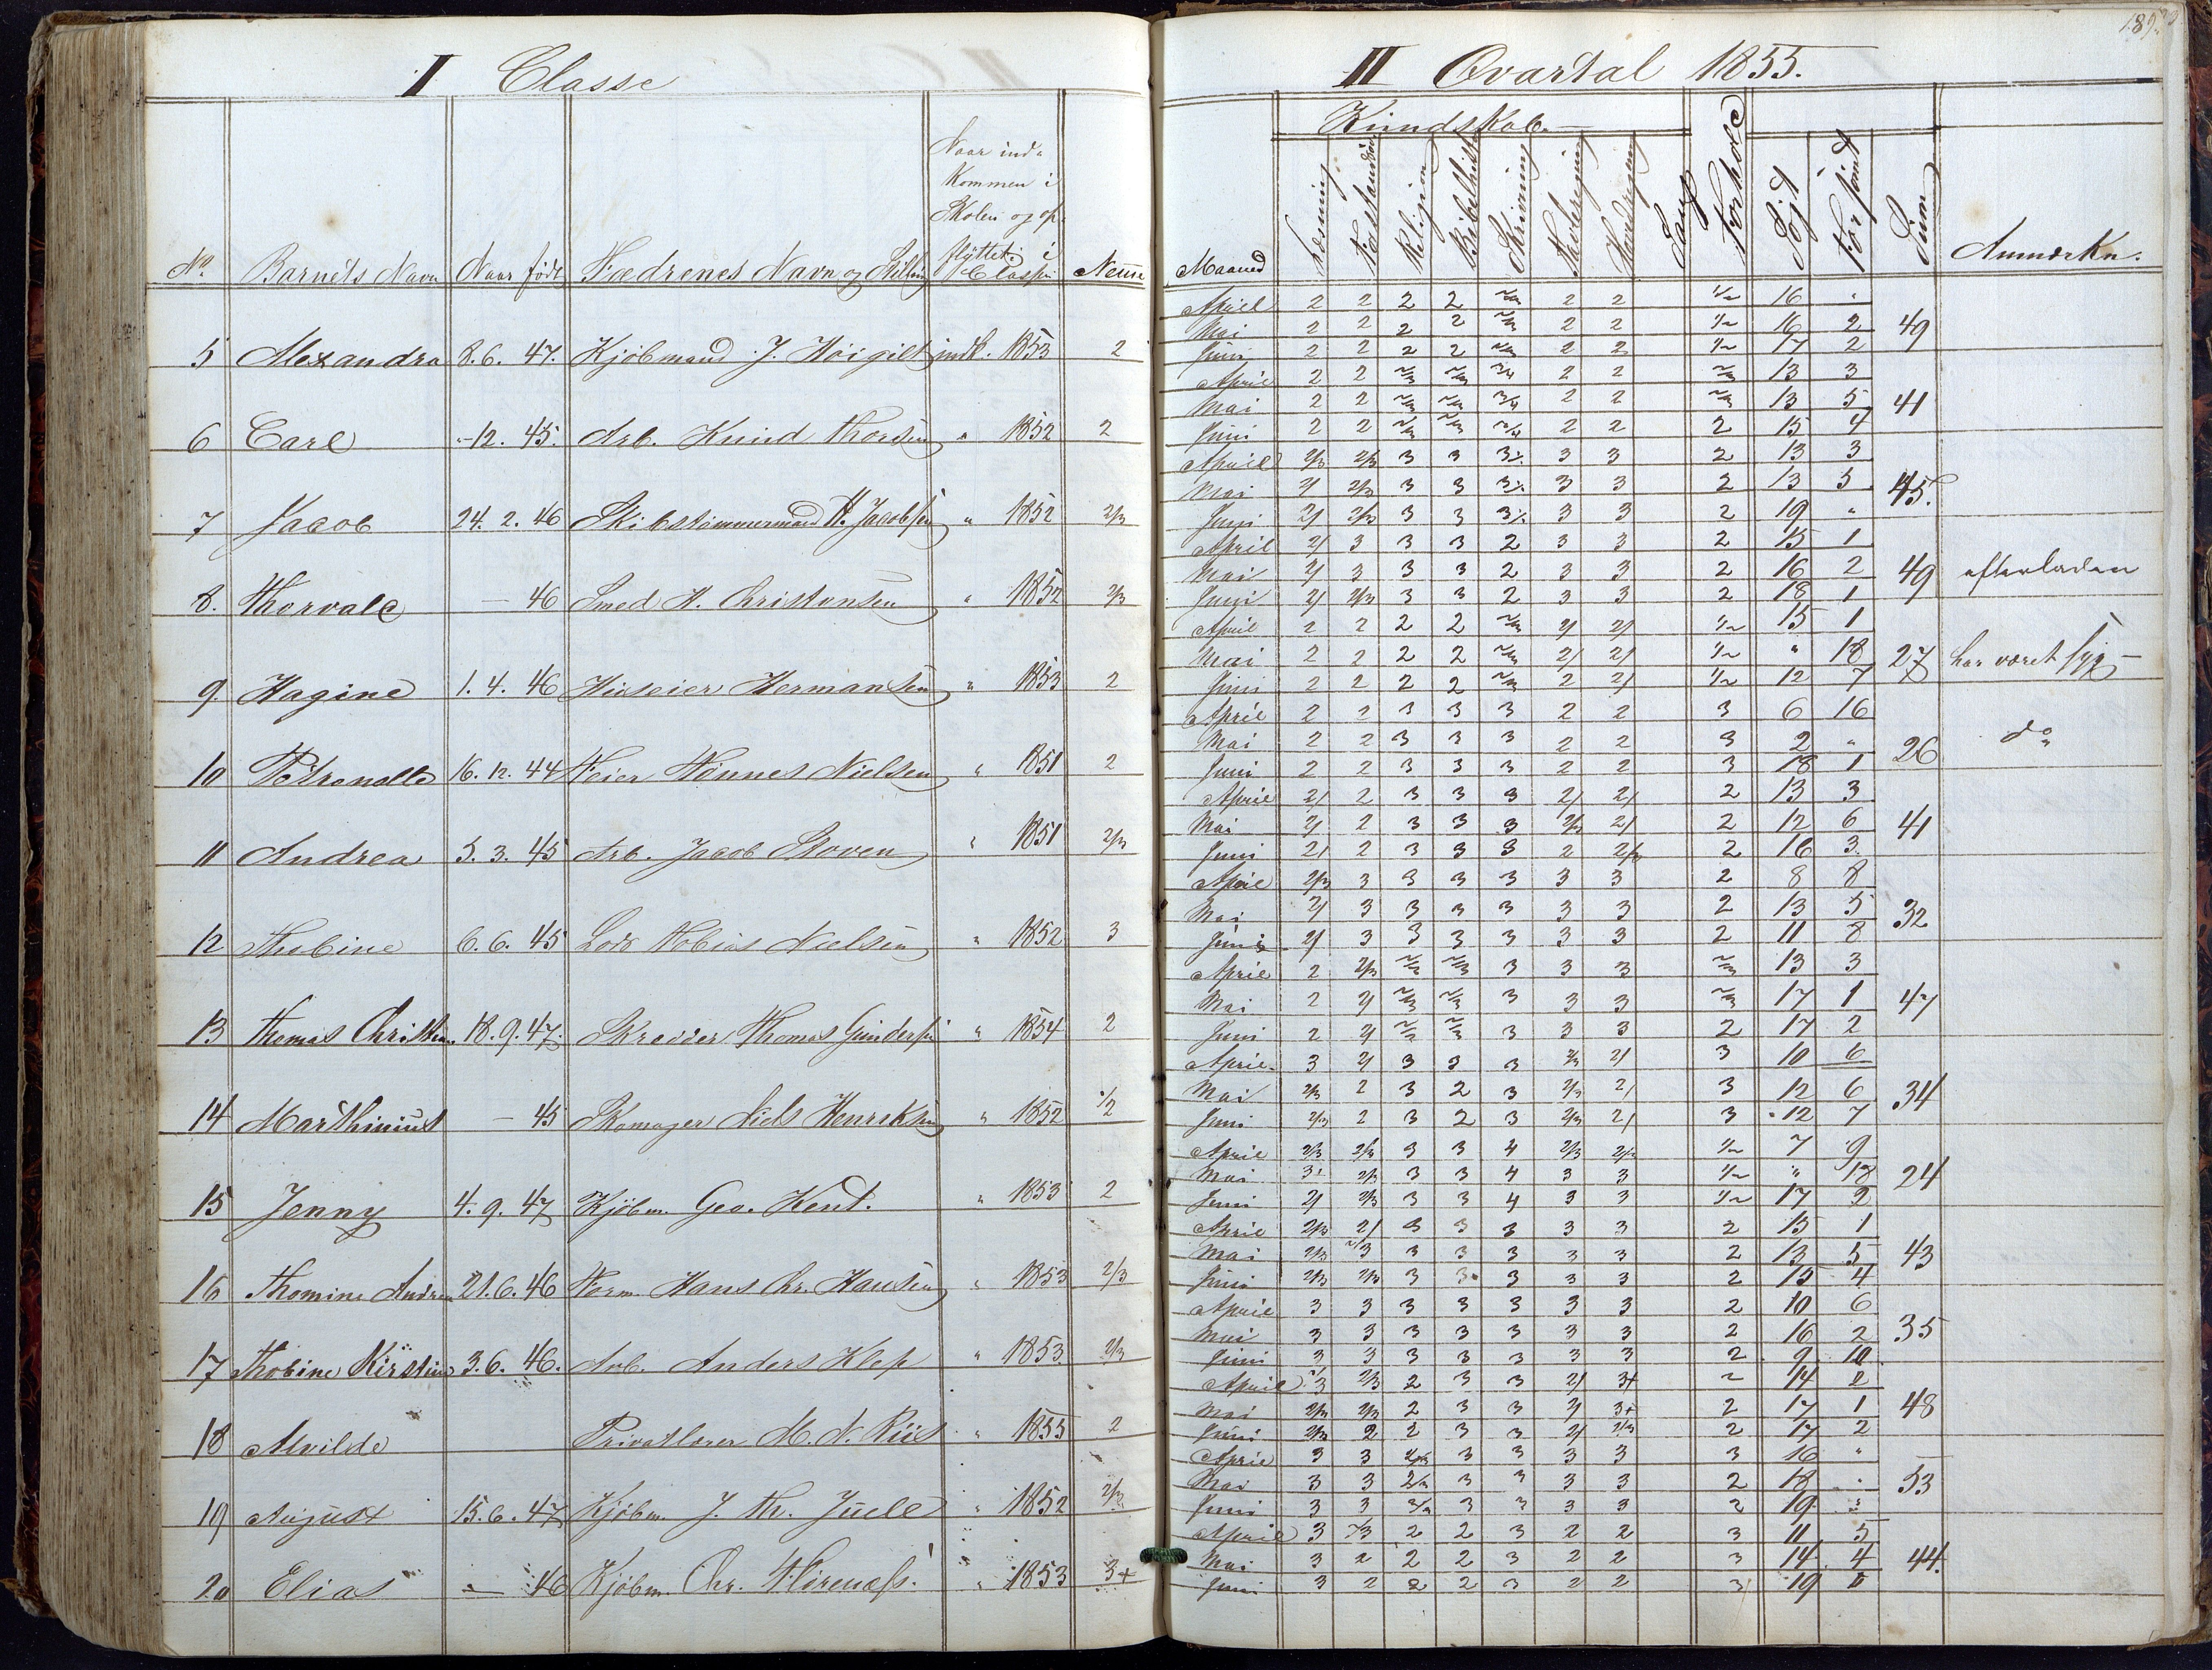 I Classe
II Qvartal 1855.
No. Barnets Navn Naar født Forældrenes Navn og Stilling Naar ind-
kommen i
Skolen og op-
flyttet i
Classen Nemme
Kundskab.
Maaned Læsning Religion Bibelhist Skrivning Tavleregning Hovedregning Sang Forhold Søgt Forsømt Sum Anmærkn.
5 Alexandra 8. 6. 47. Kjøbmand J. Høigilt indk. 1853 2
April 2 2 2 2 2/3 2 2 1/2 16 "
Mai 2 2 2 2 2/3 2 2 1/2 16 2 49
Juni 2 2 2 2 2/3 2 2 1/2 17 2
6 Carl "-12. 45. Arb. Knud Thorsen " 1852 2
April 2 2 2/3 2/3 3/4 2 2 2/3 13 3
Mai 2 2 2/3 2/3 3/4 2 2 2/3 13 5 41
Juni 2 2 2/3 2/3 3/4 2 2 2 15 4
7 Jacob 24. 2. 46 Skibstømmermand H. Jacobsen " 1852 2/3
April 2/3 2/3 3 3 3 3 2 13 3
Mai 2/ 2/3 3 3 3 3 2 13 5 45.
Juni 2/ 2/3 3 3 3 3 2 19 "
8. Thorvald — 46 Smed H. Christensen " 1852 2/3
April 2/ 3 3 3 2 3 3 2 15 1
Mai 2/ 3 3 3 2 3 3 2 16 2 49 efterladen
Juni 2/ 2/3 3 3 2 3 3 2 18 1
9. Hagine 1. 4. 46 Huseier Hermansen " 1853 2
April 2 2 2 2 2/3 2/ 2/ 1/2 15 1
Mai 2 2 2 2 2/3 2/ 2/ 1/2 " 18 27 har været syg —
Juni 2 2 2 2 2/3 2 2/ 1/2 12 7
10 Petrenelle 16. 12. 44 Hønnes Nielsen " 1851 2
April 2 2 3 3 3 2 2 3 6 16
Mai 2 2 3 3 3 2 2 3 2 " 26 do
Juni 2 2 3 3 3 2 2 3 18 1
11 Andrea 5. 3. 45 Arb. Jacob Stoven " 1851 2/3
April 2/ 2 3 3 3 2/ 2/ 2 13 3
Mai 2/ 2 3 3 3 2/3 2/ 2 12 6 41
Juni 2/ 2 3 3 3 2 2/3 2 16 3
12 Thobine 6. 6. 45 Lods Tobias Nielsen " 1852 3
April 2/3 3 3 3 3 3 3 2 8 8
Mai 2/ 3 3 3 3 3 3 2 13 5 32
Juni 2/ 3 3 3 3 3 3 2 11 8
13 Thomas Christian. 18. 9. 47. Skredder Thomas Gundersen " 1854 2
April 2 2/3 2/3 2/3 3 3 3 2/3 13 3
Mai 2 2/ 2/3 2/3 3 3 3 2/3 17 1 47
Juni 2 2/ 2/3 2/3 3 3 3 2 17 2
14 Marthinius — 45 Skomager Niels Henriksen " 1852 1/2
April 3 2/ 3 3 3 2/3 2/ 3 10 6
Mai 2/3 2 3 2 3 2/3 2/ 3 12 6 34
Juni 2/3 2 3 2 3 2/3 2/ 3 12 7
15 Jenny 4. 9. 47 Kjøbm. Geo. Kent. " 1853 2
April 2/3 2/3 3 3 4 2/3 2/3 1/2 7 9
Mai 3 2/3 3 3 4 3 3 1/2 " 18 24
Juni 2/ 2/3 3 3 4 3 3 1/2 17 2
16 Thomine Andrea 21. 6. 46 Form. Hans Chr. Hansen " 1853 2/3
April 2/3 2/ 3 3 3 3 3 2 15 1
Mai 2/3 2/3 3 3 3 3 3 2 13 5 43
Juni 2/3 2/3 3 3 3 3 3 2 15 4
17 Thobine Kirstine 3. 6. 46. Arb. Anders Klep " 1853 2/3
April 3 3 3 3 3 3 3 2 10 6
Mai 3 3 3 3 3 3 3 2 16 2 35
Juni 3 3 3 3 3 3 3 2 9 10
18 Alvilde Privatlærer M. N. Riis " 1855 2
April 3 2/3 2 3 3 2/ 3+ 2 14 2
Mai 2/3 2/3 2 3 3 2/ 3+ 2 17 1 48
Juni 2/3 2 2 3 3 2/ 2/3 2 17 2
19 August 15. 6. 47 Kjøbm. J. Th. Juell " 1852 2/3
April 3 3 2/3 3 3 3 3 3 16 "
Mai 3 3 2/3 3 3 3 3 2 18 " 53
Juni 3 3 2/3 3 3 3 3 2 19 "
20 Elias — 46 Kjøbm. Chr. " 1853 3+
April 3 2/3 2 2 3 2 2 3 11 5
Mai 3 2 2 2 3 2 2 3 14 4 44.
Juni 3 2 2 2 3 2 2 3 19